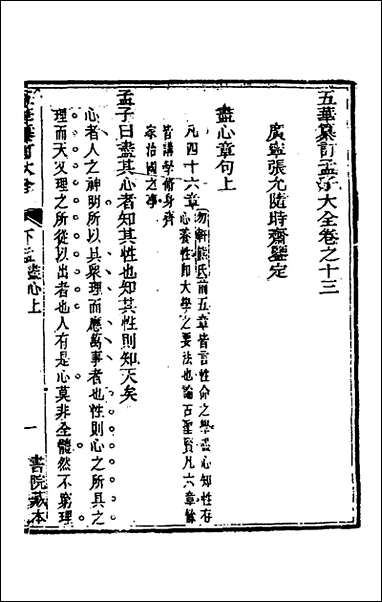 五華纂訂孟子大全卷之十三
廣寧張允隨時齋鑒定
盡心章句上
凡四十六章勿軒熊氏前五章皆言性命之學盡心知性存
心養性即大學之要法也論古聖賢凡六章餘
皆講學脩身齊
家治國之事
孟子曰盡其心者知其性也知其性則知天矣
心者人之神明所以具衆理而應萬事者也性則心之所具之
理而天又理之所從以出者也人有是心莫非全體然不窮理
五華纂訂大全
下孟盡心上
一
書院藏本